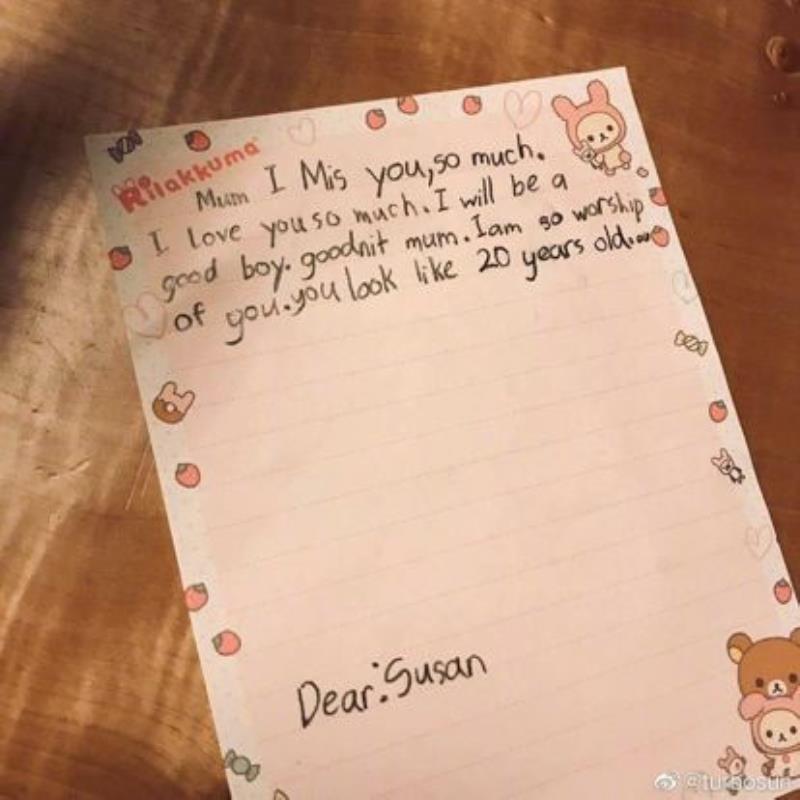 Rilakkuma
Mum I Mis you,so much.
I love you so much. I will be a
good boy. goodnit mum. I am so worship
of you. you look like 20 years old...
Dear: Susan
@turbosun